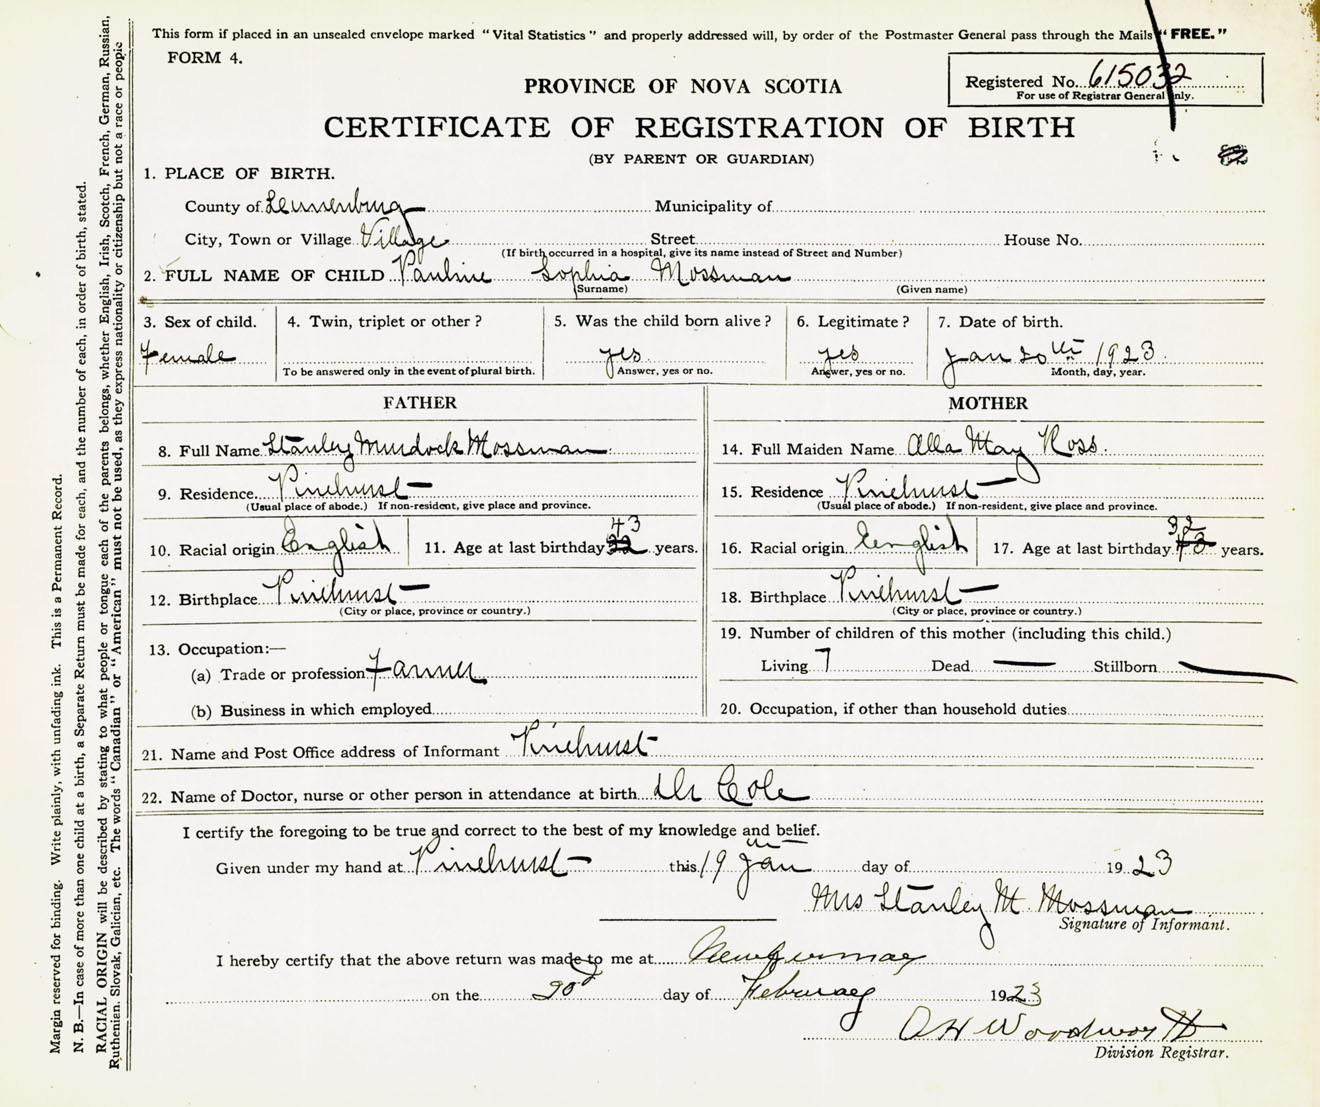 This form if placed in an unsealed envelope marked "Vital Statistics" and properly addressed will, by order of the Postmaster General pass through the Mails "FREE."
FORM 4.
Registered No. 615032
For use of Registrar General only.
PROVINCE OF NOVA SCOTIA
CERTIFICATE OF REGISTRATION OF BIRTH
(BY PARENT OR GUARDIAN)
1. PLACE OF BIRTH.
County of Lunenburg Municipality of
City, Town or Village Village Street House No.
(If birth occurred in a hospital, give its name instead of Street and Number)
2. FULL NAME OF CHILD Pauline Sophia Mossman
(Surname) (Given name)
3. Sex of child. 4. Twin, triplet or other? 5. Was the child born alive? 6. Legitimate? 7. Date of birth.
Female yes yes Jan 20th 1923
To be answered only in the event of plural birth. Answer, yes or no. Answer, yes or no. Month, day, year.
FATHER MOTHER
8. Full Name Stanley Murdock Mossman 14. Full Maiden Name Alla May Ross.
9. Residence Pinehurst 15. Residence Pinehurst
(Usual place of abode.) If non-resident, give place and province. (Usual place of abode.) If non-resident, give place and province.
43 32
10. Racial origin English 11. Age at last birthday 32 years. 16. Racial origin English 17. Age at last birthday 43 years.
12. Birthplace Pinehurst 18. Birthplace Pinehurst
(City or place, province or country.) (City or place, province or country.)
13. Occupation:—
(a) Trade or profession Farmer
(b) Business in which employed
19. Number of children of this mother (including this child.)
Living 7 Dead — Stillborn —
20. Occupation, if other than household duties
21. Name and Post Office address of Informant Pinehurst
22. Name of Doctor, nurse or other person in attendance at birth Dr Cole
I certify the foregoing to be true and correct to the best of my knowledge and belief.
Given under my hand at Pinehurst this 19th Jan day of 1923
Mrs Stanley M. Mossman
Signature of Informant.
I hereby certify that the above return was made to me at New Germany
on the 20d day of February 1923
Division Registrar.
Margin reserved for binding. Write plainly, with unfading ink. This is a Permanent Record.
N. B.—In case of more than one child at a birth, a Separate Return must be made for each, and the number of each, in order of birth, stated.
RACIAL ORIGIN will be described by stating to what people or tongue each of the parents belongs, whether English, Irish, Scotch, French, German, Russian,
Ruthenian, Slovak, Galician, etc. The words "Canadian" or "American" must not be used, as they express nationality or citizenship but not a race or people